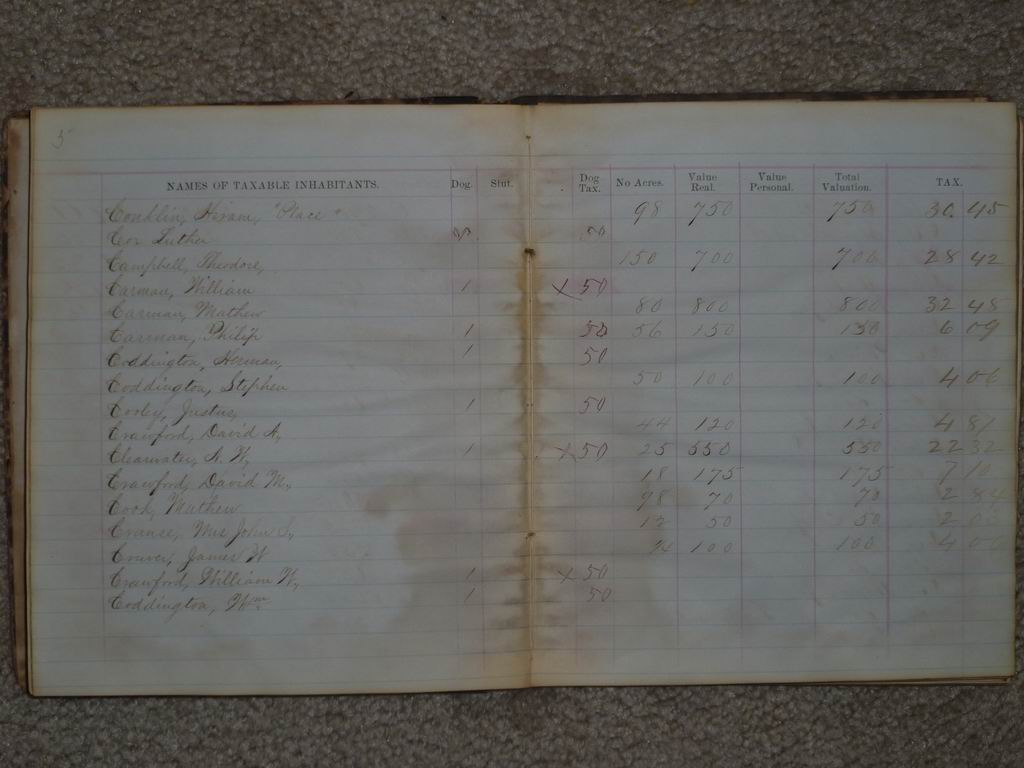 5
NAMES OF TAXABLE INHABITANTS. Dog. Slut. Dog Tax. No Acres. Value Real. Value Personal. Total Valuation. TAX.
Conklin, Hiram, "Place" 98 750 750 30 45
Cox Luther 50
Campbell, Theodore, 150 700 700 28 42
Carman, William 1 X 50
Carman, Mathew 80 800 800 32 48
Carman, Philip 1 50 56 150 150 6 09
Coddington, Herman, 1 50
Coddington, Stephen 50 100 100 4 06
Cooley, Justus, 1 50
Crawford, David A, 44 120 120 4 87
Clearwater, N. W, 1 X 50 25 550 550 22 32
Crawford, David M., 18 175 175 7 10
Cook, Mathew 98 70 70 2 84
Mrs John S, 12 50 50 2
James W 100 100 4
Crawford, William W, 1 X 50
Coddington, Wm 1 50